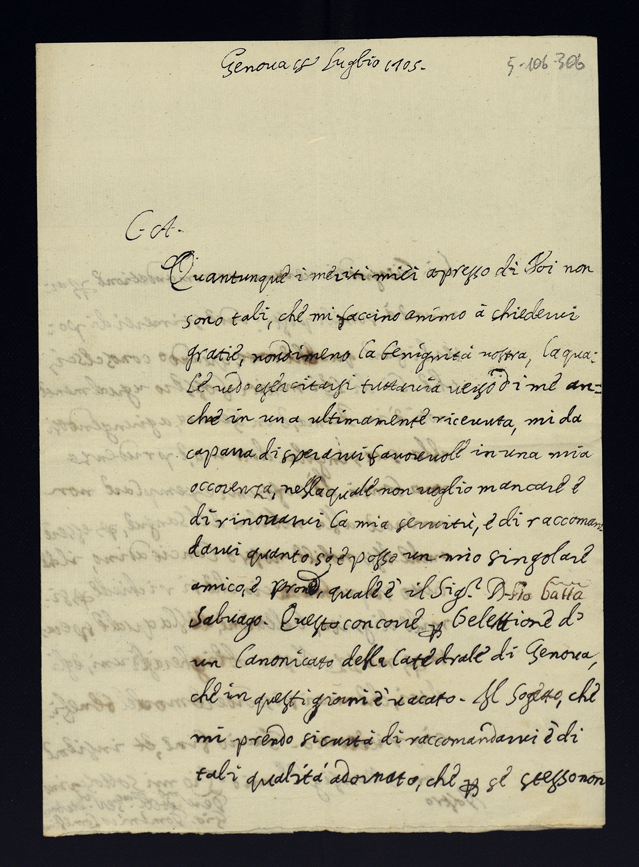 Genova 18 Luglio 1705.
5-106-306
C. A.
Quantunque i meriti miei apresso di Voi non
sono tali, che mi faccino animo à chiedervi
gratie, nondimeno la benignità vostra, la qua=
le vedo essercitarsi tuttavia verso di me an=
che in una ultimamente ricevuta, mi da
capara di sperarvi favorevole in una mia
occorenza, nella quale non voglio mancare è
di rinovarvi la mia servitù, è di raccoman
darvi quanto sò è posso un mio singolare
amico, è qual'è il Sig.r Gio batta
Salvago. Questo concorre l'elettione d'
un Canonicato della Catedrale di Genova,
che in questi giorni è vacato. Il Sogetto, che
mi prendo sicurtà di raccomandarvi è di
tali qualità adornato, che se stesso non